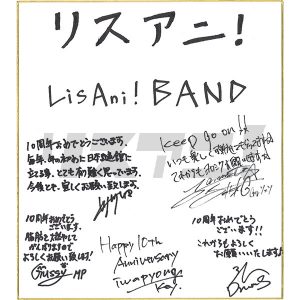 リスアニ!
LisAni! BAND
10周年おめでとうございます。
毎年、年のわじめに日本武道館に
立てる事、とても有り難く思っています。
今後とも、宜しくお願い致します。
Keep Go on!!
いつも楽しく
10周年おめでとう
ございます。
脂肪を燃やして
がんばりますので
よろしくお願い致します!
Gussy MP
Happy 10th
Anniversary
Iwapyong
Key.
10周年おめでとう
ございます!!
これからもよろしく
お願いいたします!